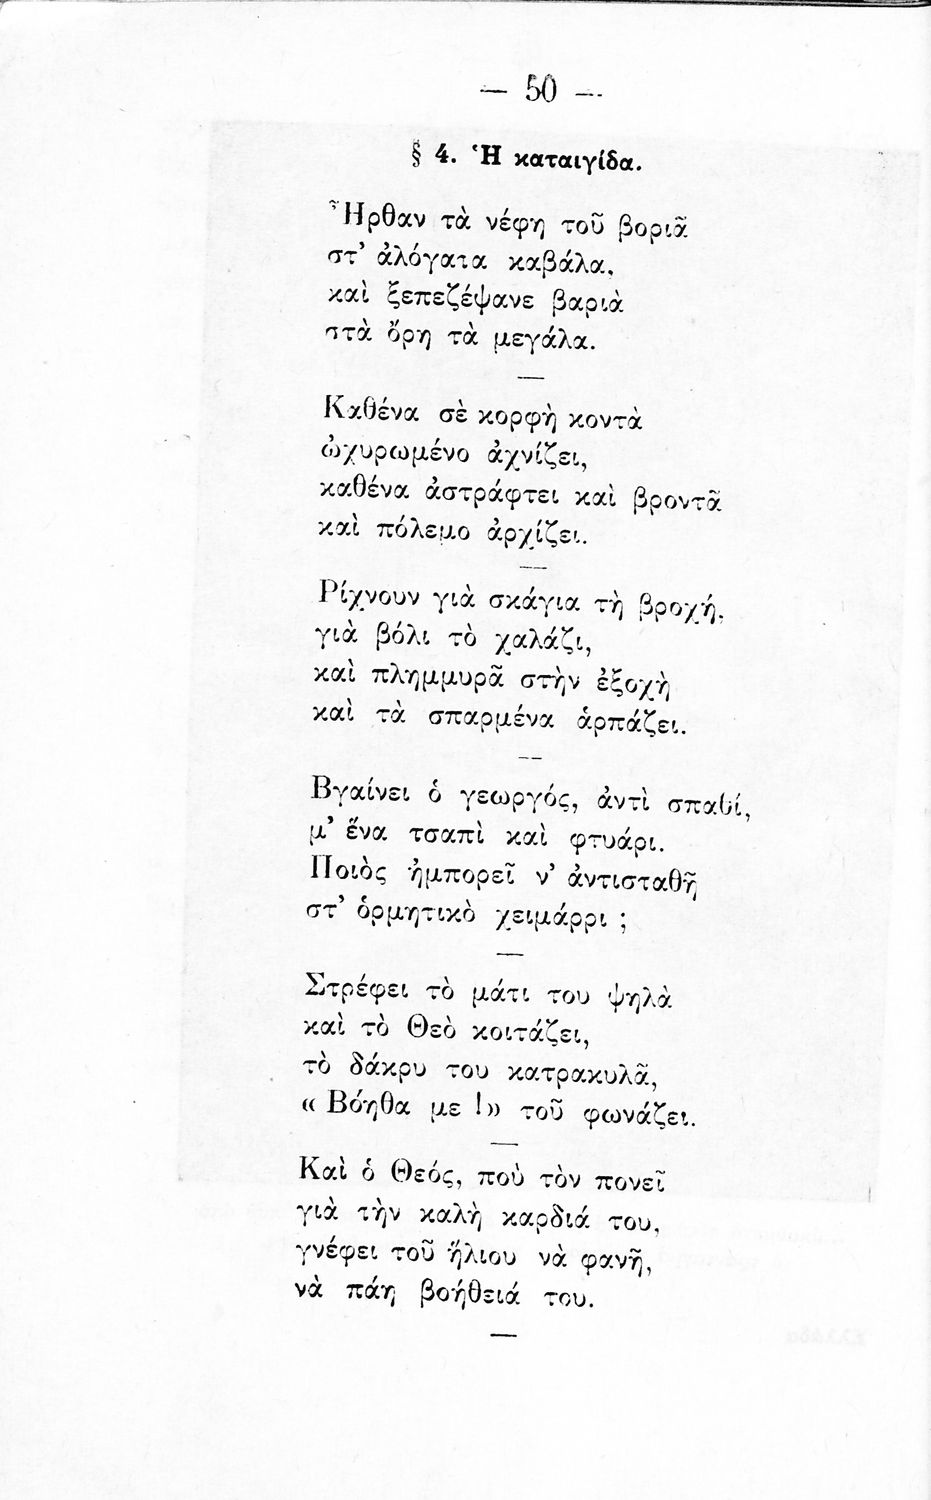 — 50 —
§ 4. Ἡ καταιγίδα.
Ἦρθαν τὰ νέφη τοῦ βοριᾶ
στ’ ἀλόγατα καβάλα,
καὶ ξεπεζέψανε βαριὰ
στὰ ὄρη τὰ μεγάλα.
—
Καθένα σὲ κορφὴ κοντὰ
ὠχυρωμένο ἀχνίζει,
καθένα ἀστράφτει καὶ βροντᾶ
καὶ πόλεμο ἀρχίζει.
—
Ρίχνουν γιὰ σκάγια τὴ βροχή,
γιὰ βόλι τὸ χαλάζι,
καὶ πλημμυρᾶ στὴν ἐξοχὴ
καὶ τὰ σπαρμένα ἁρπάζει.
—
Βγαίνει ὁ γεωργός, ἀντὶ σπαθί,
μ’ ἕνα τσαπὶ καὶ φτυάρι.
Ποιὸς ἠμπορεῖ ν’ ἀντισταθῆ
στ’ ὁρμητικὸ χειμάρρι ;
—
Στρέφει τὸ μάτι του ψηλὰ
καὶ τὸ Θεὸ κοιτάζει,
τὸ δάκρυ του κατρακυλᾶ,
« Βόηθα με !» τοῦ φωνάζει.
—
Καὶ ὁ Θεός, ποὺ τὸν πονεῖ
γιὰ τὴν καλὴ καρδιά του,
γνέφει τοῦ ἥλιου νὰ φανῆ,
νὰ πάη βοήθειά του.
—